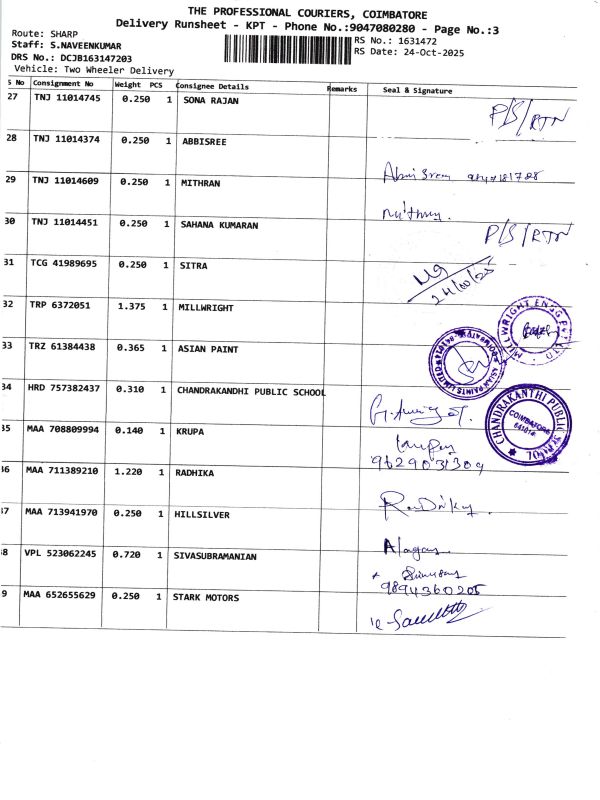 THE PROFESSIONAL COURIERS, COIMBATORE
Delivery Runsheet - KPT - Phone No.:9047080280 - Page No.:3
Route: SHARP
Staff: S.NAVEENKUMAR
DRS No.: DCJB163147203
Vehicle: Two Wheeler Delivery
RS No.: 1631472
RS Date: 24-Oct-2025
S No Consignment No Weight PCS Consignee Details Remarks Seal & Signature
27 TNJ 11014745 0.250 1 SONA RAJAN P/S/RTN
28 TNJ 11014374 0.250 1 ABBISREE
29 TNJ 11014609 0.250 1 MITHRAN
30 TNJ 11014451 0.250 1 SAHANA KUMARAN P/S/RTN
31 TCG 41989695 0.250 1 SITRA
24/10/25
32 TRP 6372051 1.375 1 MILLWRIGHT
MILLWRIGHT ENGG PVT LTD
33 TRZ 61384438 0.365 1 ASIAN PAINT
ASIAN PAINTS LIMITED
34 HRD 757382437 0.310 1 CHANDRAKANDHI PUBLIC SCHOOL
CHANDRAKANTHI PUBLIC SCHOOL
COIMBATORE
35 MAA 708809994 0.140 1 KRUPA
9629031309
36 MAA 711389210 1.220 1 RADHIKA
37 MAA 713941970 0.250 1 HILLSILVER
38 VPL 523062245 0.720 1 SIVASUBRAMANIAN
9894360205
39 MAA 652655629 0.250 1 STARK MOTORS